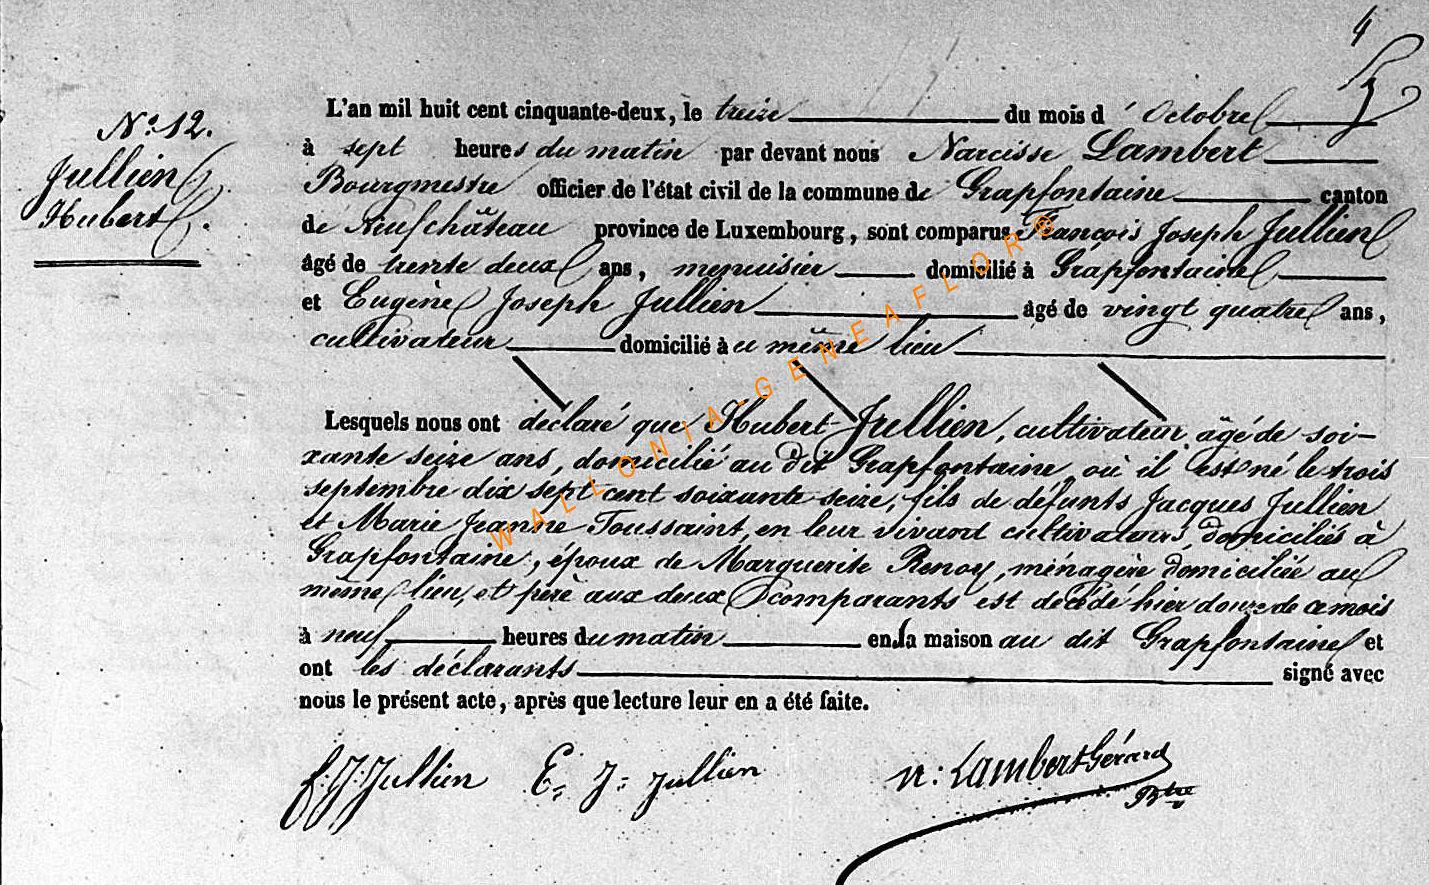 4
N° 12.
Jullien
Hubert.
L'an mil huit cent cinquante-deux, le treize du mois d'Octobre
à sept heures du matin par devant nous Narcisse Lambert
Bourgmestre officier de l'état civil de la commune de Grapfontaine canton
de Neufchâteau province de Luxembourg, sont comparus François Joseph Jullien
âgé de trente deux ans, menuisier domicilié à Grapfontaine
et Eugène Joseph Jullien âgé de vingt quatre ans,
cultivateur domicilié à u même lieu
Lesquels nous ont déclaré que Hubert Jullien, cultivateur âgé de soi-
xante seize ans, domicilié au dit Grapfontaine, où il est né le trois
septembre dix sept cent soixante seize, fils de défunts Jacques Jullien
et Marie Jeanne Toussaint, en leur vivant cultivateurs domiciliés à
Grapfontaine, époux de Marguerite Renoy, ménagère domiciliée au
même lieu, et père aux deux comparants est décédé hier douze de ce mois
à neuf heures du matin en la maison au dit Grapfontaine et
ont les déclarants signé avec
nous le présent acte, après que lecture leur en a été faite.
f. J. Jullien E. J. Jullien n. Lambert Gérard
Btre
WALLONIA-GENEAFLOR®